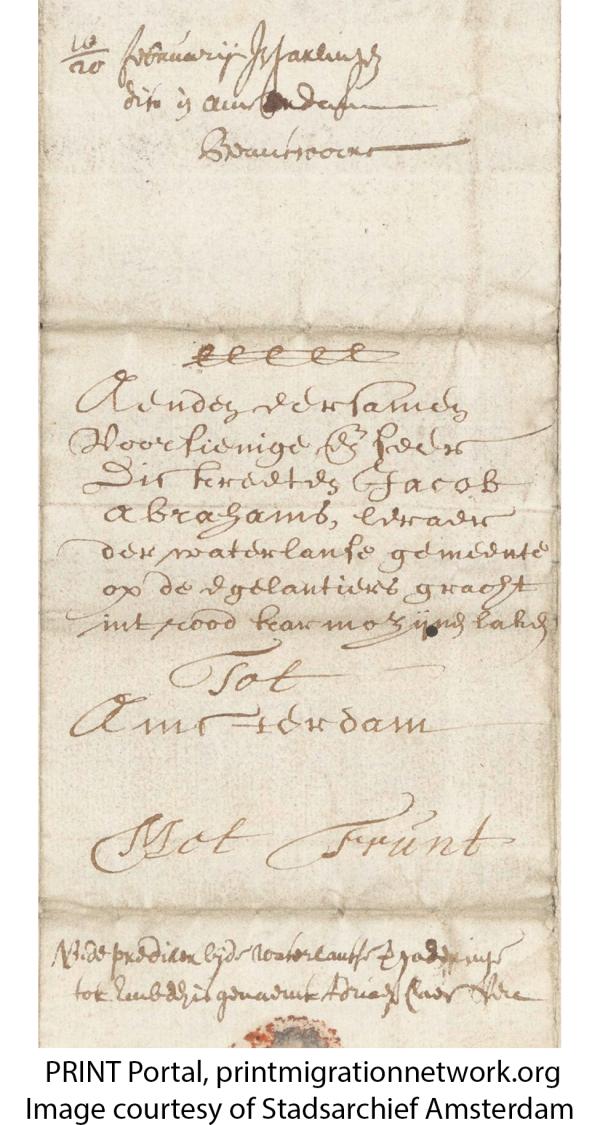 10/20 februarij
dito in amsterdam
Beantwoort
Aenden eersamen
Voorsienige & seer
Diskreeten Jacob
Abrahams, leraer
der waterlanse gemeente
op de egelantiers gracht
int rood karmozijn laken
Tot
Amsterdam
Met Frunt
predikt bijde waterlantse
tot genaemt Adriaen
PRINT Portal, printmigrationnetwork.org
Image courtesy of Stadsarchief Amsterdam